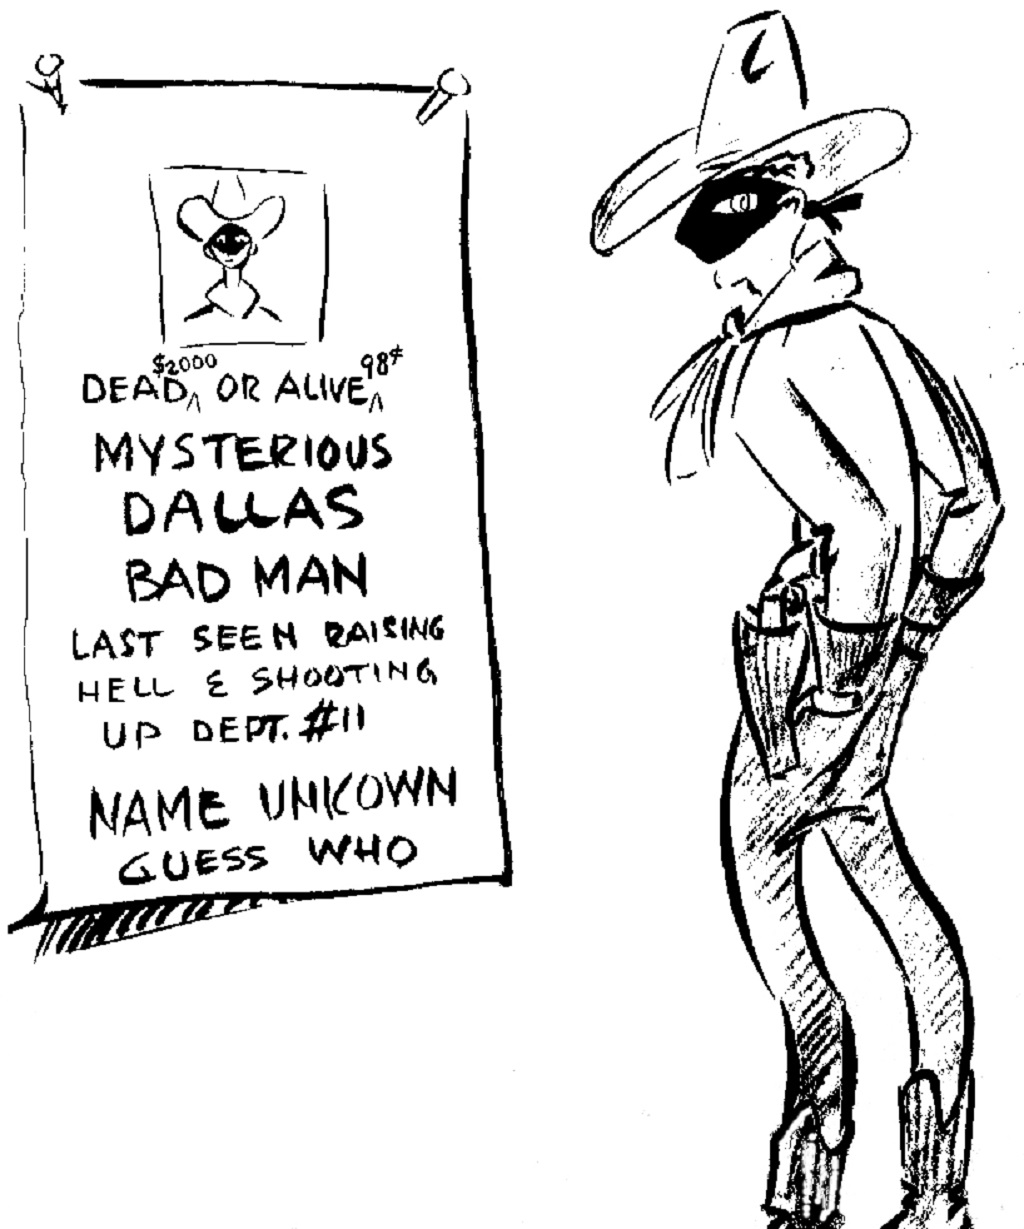 $2000 98¢
DEAD^ OR ALIVE^
MYSTERIOUS
DALLAS
BAD MAN
LAST SEEN RAISING
HELL & SHOOTING
UP DEPT. #11
NAME UNKOWN
GUESS WHO